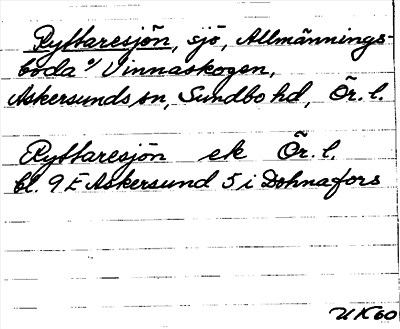 Ryttaresjön, sjö, Allmännings-
boda o/ Vinnaskogen,
Askersunds sn, Sundbo hd, Ör. l.
Ryttaresjön ek Ör. l.
bl. 9 E Askersund 5 i Dohnafors
U K 60